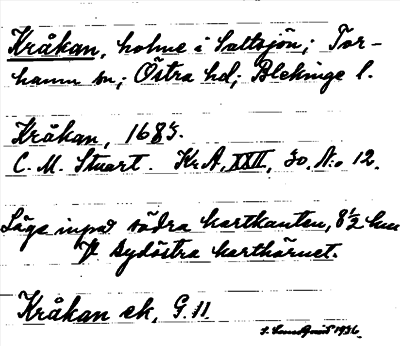 Kråkan, holme i Saltsjön; Tor-
hamn sn; Östra hd; Blekinge l.
Kråkan, 1685.
C. M. Stuart. Kr. A. XXII, 30, No 12.
Läge inpå södra kartkanten, 8½ km
fr sydöstra karthörnet.
Kråkan ek, G. 11.
1936.